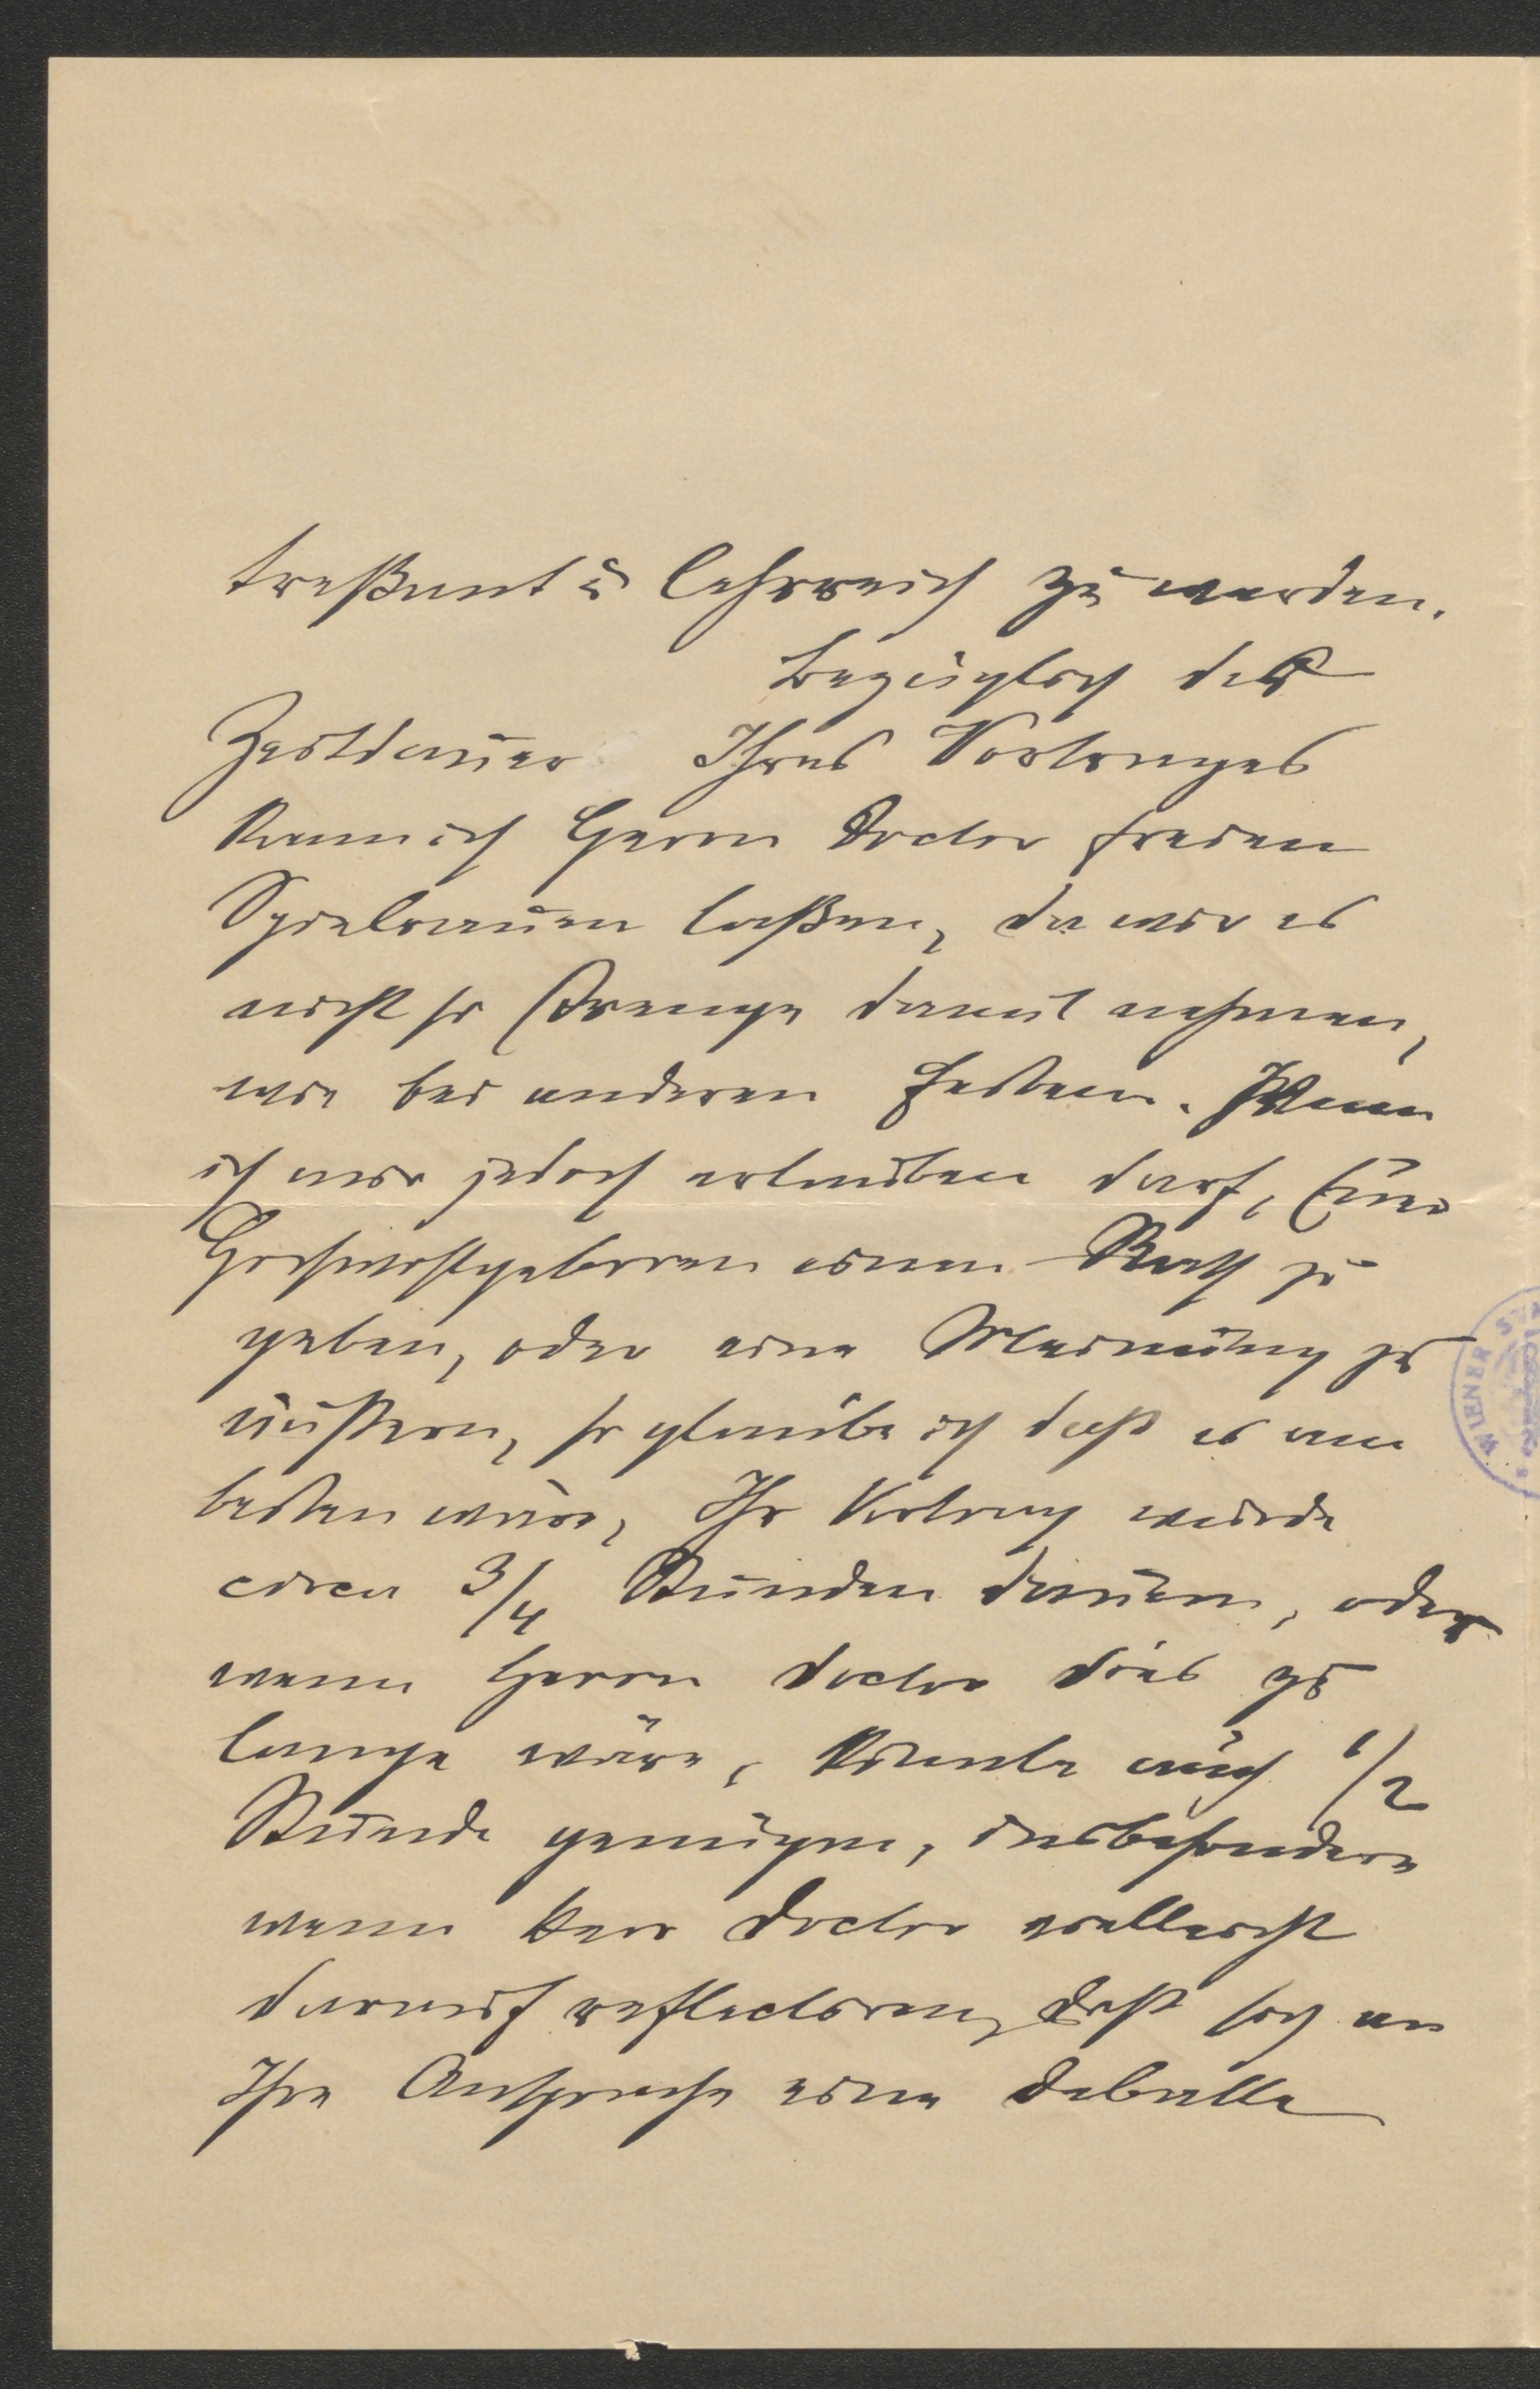 treßant u lehrreich zu werden.
Bezüglich der
Zeitdauer Ihres Vortrages
kann ich Herrn Doctor freien
Spielraum laßen, da wir es
nicht so strenge damit nehmen,
wie bei anderen Festen. Wenn
ich mir jedoch erlauben darf, Euer
Hochwohlgeboren einen Rath zu
geben, oder eine Meinung zu
äußern, so glaube ich daß es am
besten wäre, Ihr Vortrag würde
circa 3/4 Stunden dauern, oder
wenn Herrn Doctor dies zu
lange wäre, könnte auch 1/2
Stunde genügen, insbesondere
wenn Herr Doctor vielleicht
darauf reflectiren, daß sich an
Ihre Ansprache eine Debatte
WIENER